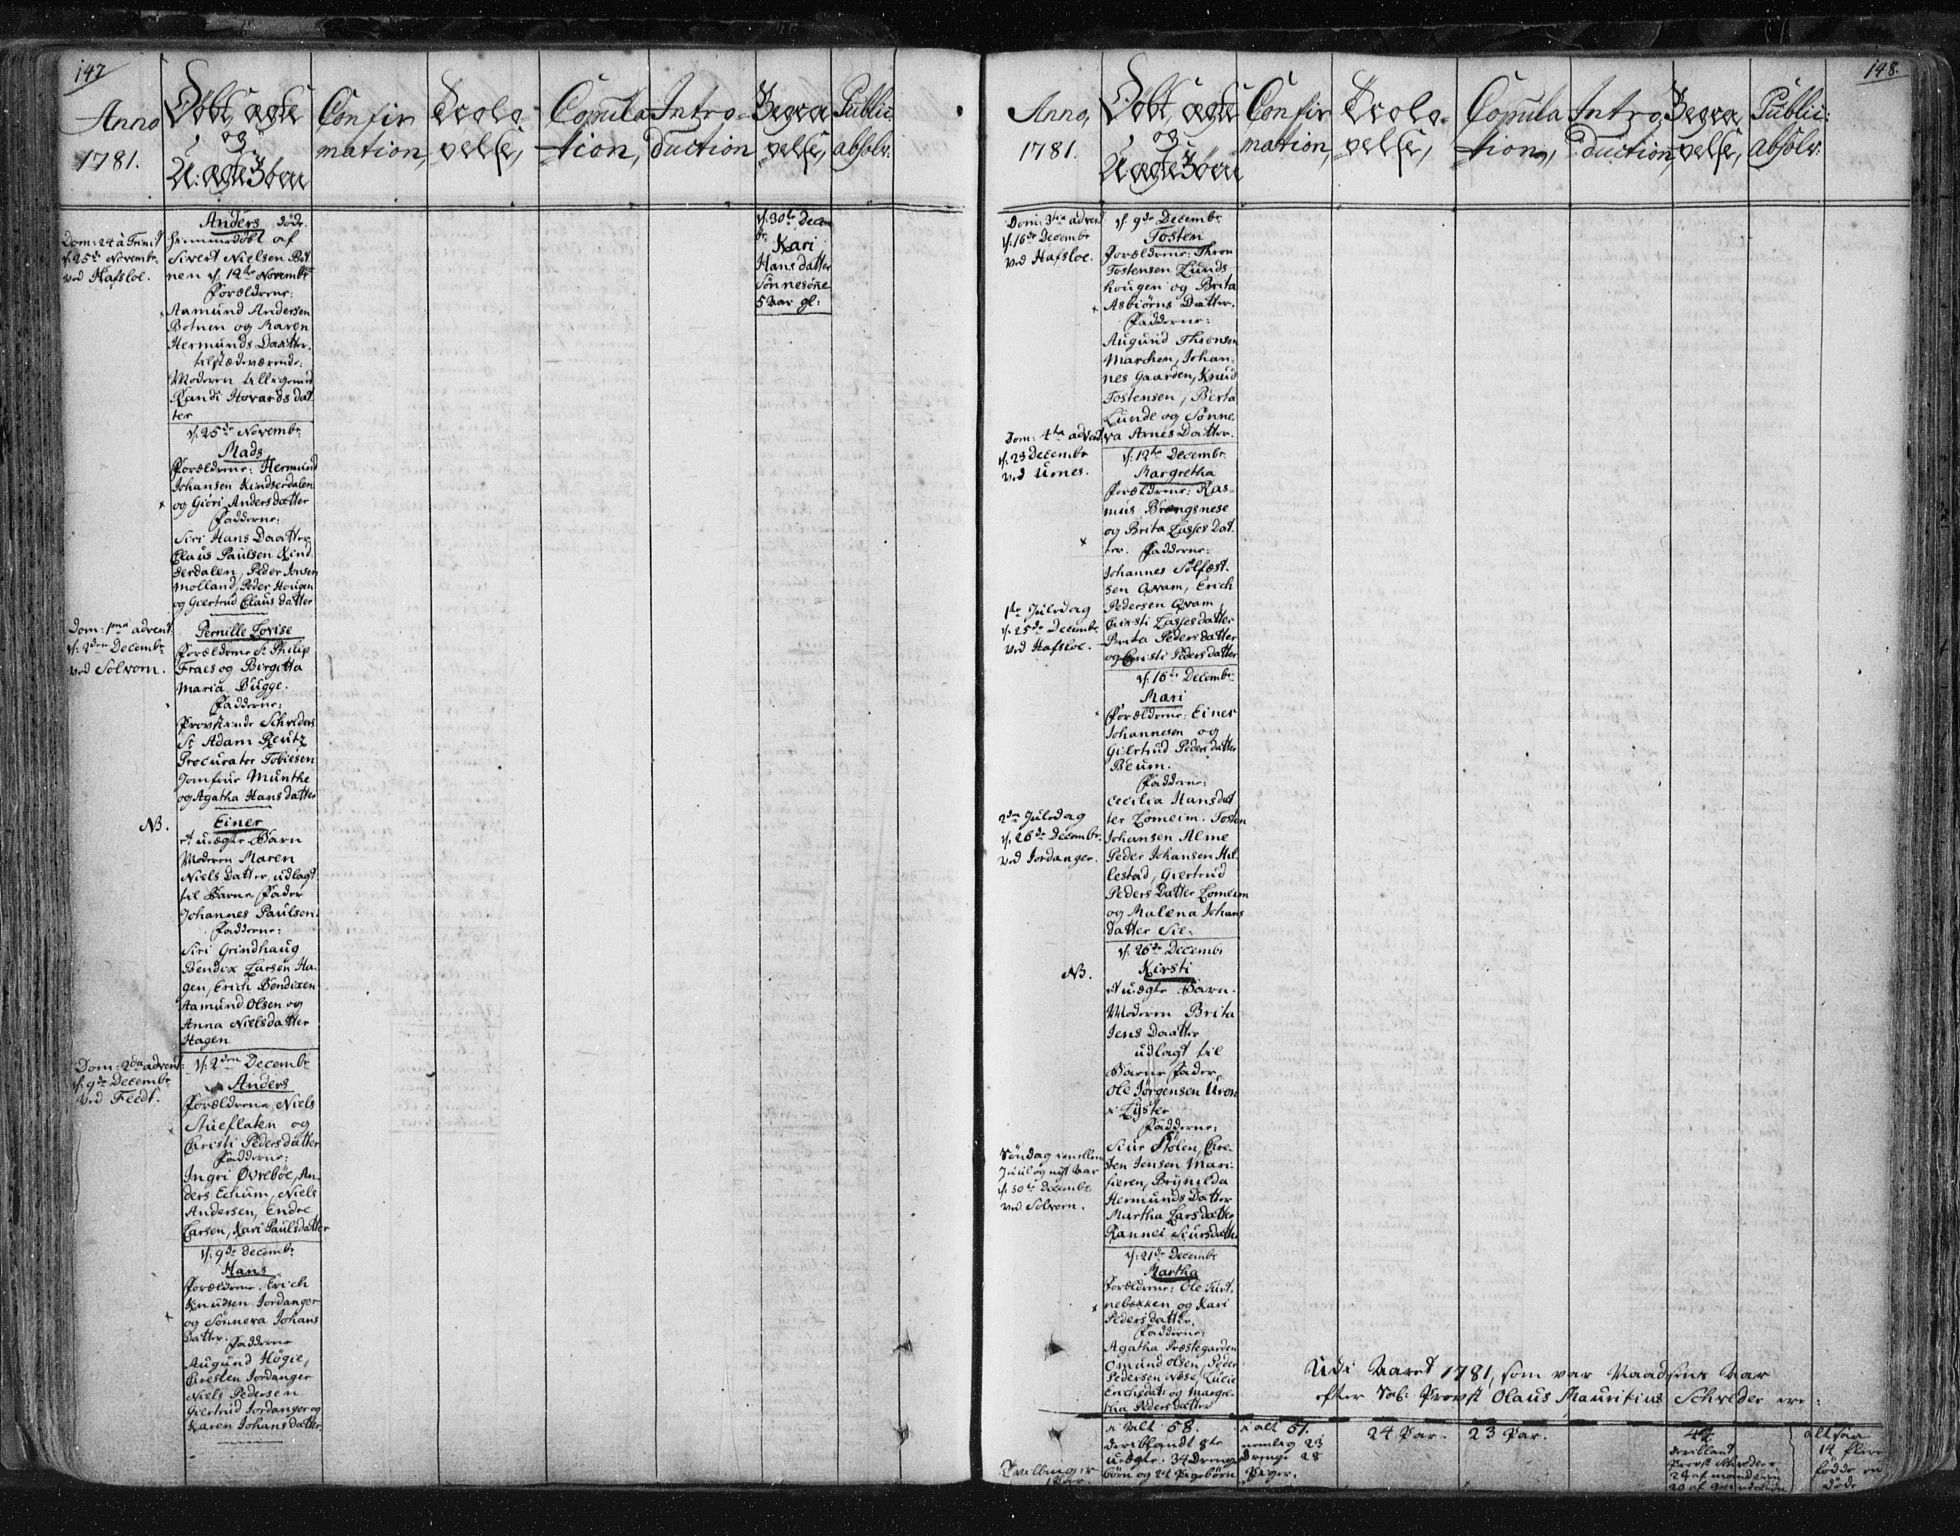 147
Anno
1781.
Døbt ægte
og
U: ægte Børn
Confir
mation,
Trolo
velse,
Copula
tion,
Intro
duction
Begra
velse,
Public:
absolv:
Dom: 24 à Trinit
d: 25de Novembr
ved Hafsloe.
Anders døde
hiemmedøbt af
Sivert Nielsen Bot
nen d: 12te Novembr
Forældrene:
Aamund Andersen
Botnen og Maren
Hermunds Daatter.
tilstædeværende:
Moderen tilligemed
Randi Hovards dat
ter
d: 25de Novembr
Mads
Forældrene: Hermund
Johansen Kindserdalen
og Giöri Andersdatter
Fadderne:
Siri Hans Daatter
Claus Paulsen Kind
serdalen, Peder Jonsen
Molland, Peder Hougen
og Giertrud Claus datter
Dom: 1ma advent:
d: 2den Decembr
ved Solvorn.
Pernille Lovise
Forældrene Sr Philip
Fraes og Birgitta
Maria Bugge.
Fadderne:
Provstinde Schreders
Sr Adam Reutz
Procurator Tobiesen
Jomfrue Munthe
og Agatha Hans datter
NB.
Einer
et uægte Barn
Moderen Maren
Niels Datter, udlagt
til Barne Fader
Johannes Paulsen.
Fadderne:
Siri Grindhaug
Bendix Larsen Ha-
gen, Erich Bendixen
Aamund Olsen og
Anna Nielsdatter
Hagen
Dom: 2da advent:
d: 9de Decembr
ved Feedt.
d: 2den Decembr
Anders
Forældrene, Niels
Stueflaten og
Christi Pedersdatter
Fadderne:
Ingri Øvrebøe, An-
ders Echum, Niels
Andersen, Endre
Larsen, Kari Paulsdatter
d: 9de Decembr
Hans
Forældrene. Erich
Knudsen Jordanger
og Sönneva Johans
Datter.
Fadderne
Augund Högie,
Christen Jordanger
Niels Pedersen
Giertrud Jordanger og
Karen Johans datter
d: 30te Decem
br
Kari
Hans datter
Sönnesöne
5 Aar gl:
148.
Anno,
1781.
Døbt, ægte
og
Uægte Børn
Confir
mation,
Trolo-
velse,
Copula
tion,
Intro,
duction,
Begra,
velse,
Public:
absolv:
Dom: 3tia advent
d: 16de Decembr
ved Hafsloe.
d: 9de Decembr
Tosten
Forældrene: Thron
Tostensen Lunds
hougen og Brita
Asbiörns Datter.
Fadderne:
Augund Thronsen
Marchen, Johan-
nes Gaarden, Knud
Tostensen, Berta
Lunde og Sönne
va Arnes Datter.
Dom: 4ta advent.
d: 23 Decembr
ved Urnes.
d: 12te Decembr
Margretha
Forældrene: Ras-
mus Brængsnese
og Brita Lasses Dat
ter. Fadderne:
Johannes Sölfæst
sen Qvam, Erich
Pedersen Qvam
Christi Lasses datter
Brita Peders datter
og Christi Peders datter
1te Juledag
d: 25de Decembr
ved Hafsloe.
d: 16de Decembr
Mari
Forældrene: Einer
Johannesen og
Giertrud Peders datter
Beum.
Fadderne:
Cecilia Hansdat
ter Lomeim. Tosten
Johansen Alme
Peder Johansen Hil
lestad, Giertrud
Peders Datter Lomeim
og Malena Johans
datter Sie-
2den Juledag
d: 26de Decembr:
ved Jordanger.
d: 26de Decembr
NB.
Kirsti
et uægte Barn.
Moderen Brita
Jens Daatter
udlagt til
Barne Fader,
Ole Jörgensen Uren
i Lÿster
Fadderne:
Siur Stölen, Chre-
sten Jensen Mari-
fieren, Brynilda
Hermunds Datter
Martha Larsdatter
Rannei Siursdatter
Söndag imellem
Juul og nyt Aar
d: 30te Decembr
ved Solvorn.
d: 21de Decembr
Martha
Forældrene: Ole Furt
nebakken og Kari
Pedersdatter.
Fadderne:
Agatha Præstegarden
Omund Olsen, Peder
Pedersen Næse, Lucie
Erichsdatr og Margre-
tha Peders datter
Udi Aaret 1781, som var Naadsens Aar
efter Sal: Provst Olaus Mauritius Schreder ere:
Tvillinger
1 Par.
i Alt 58.
deriblandt 8te
uægte. 34 Drenge
börn og 24 Pigebörn
i alt 51.
nemlig 23
drenge 28
Piger.
24 Par.
23 Par.
44
deriblant
Provst Schreder
24 af mandkiön
20 af qvindekiön
altsaa
14 flere
födde en
döde